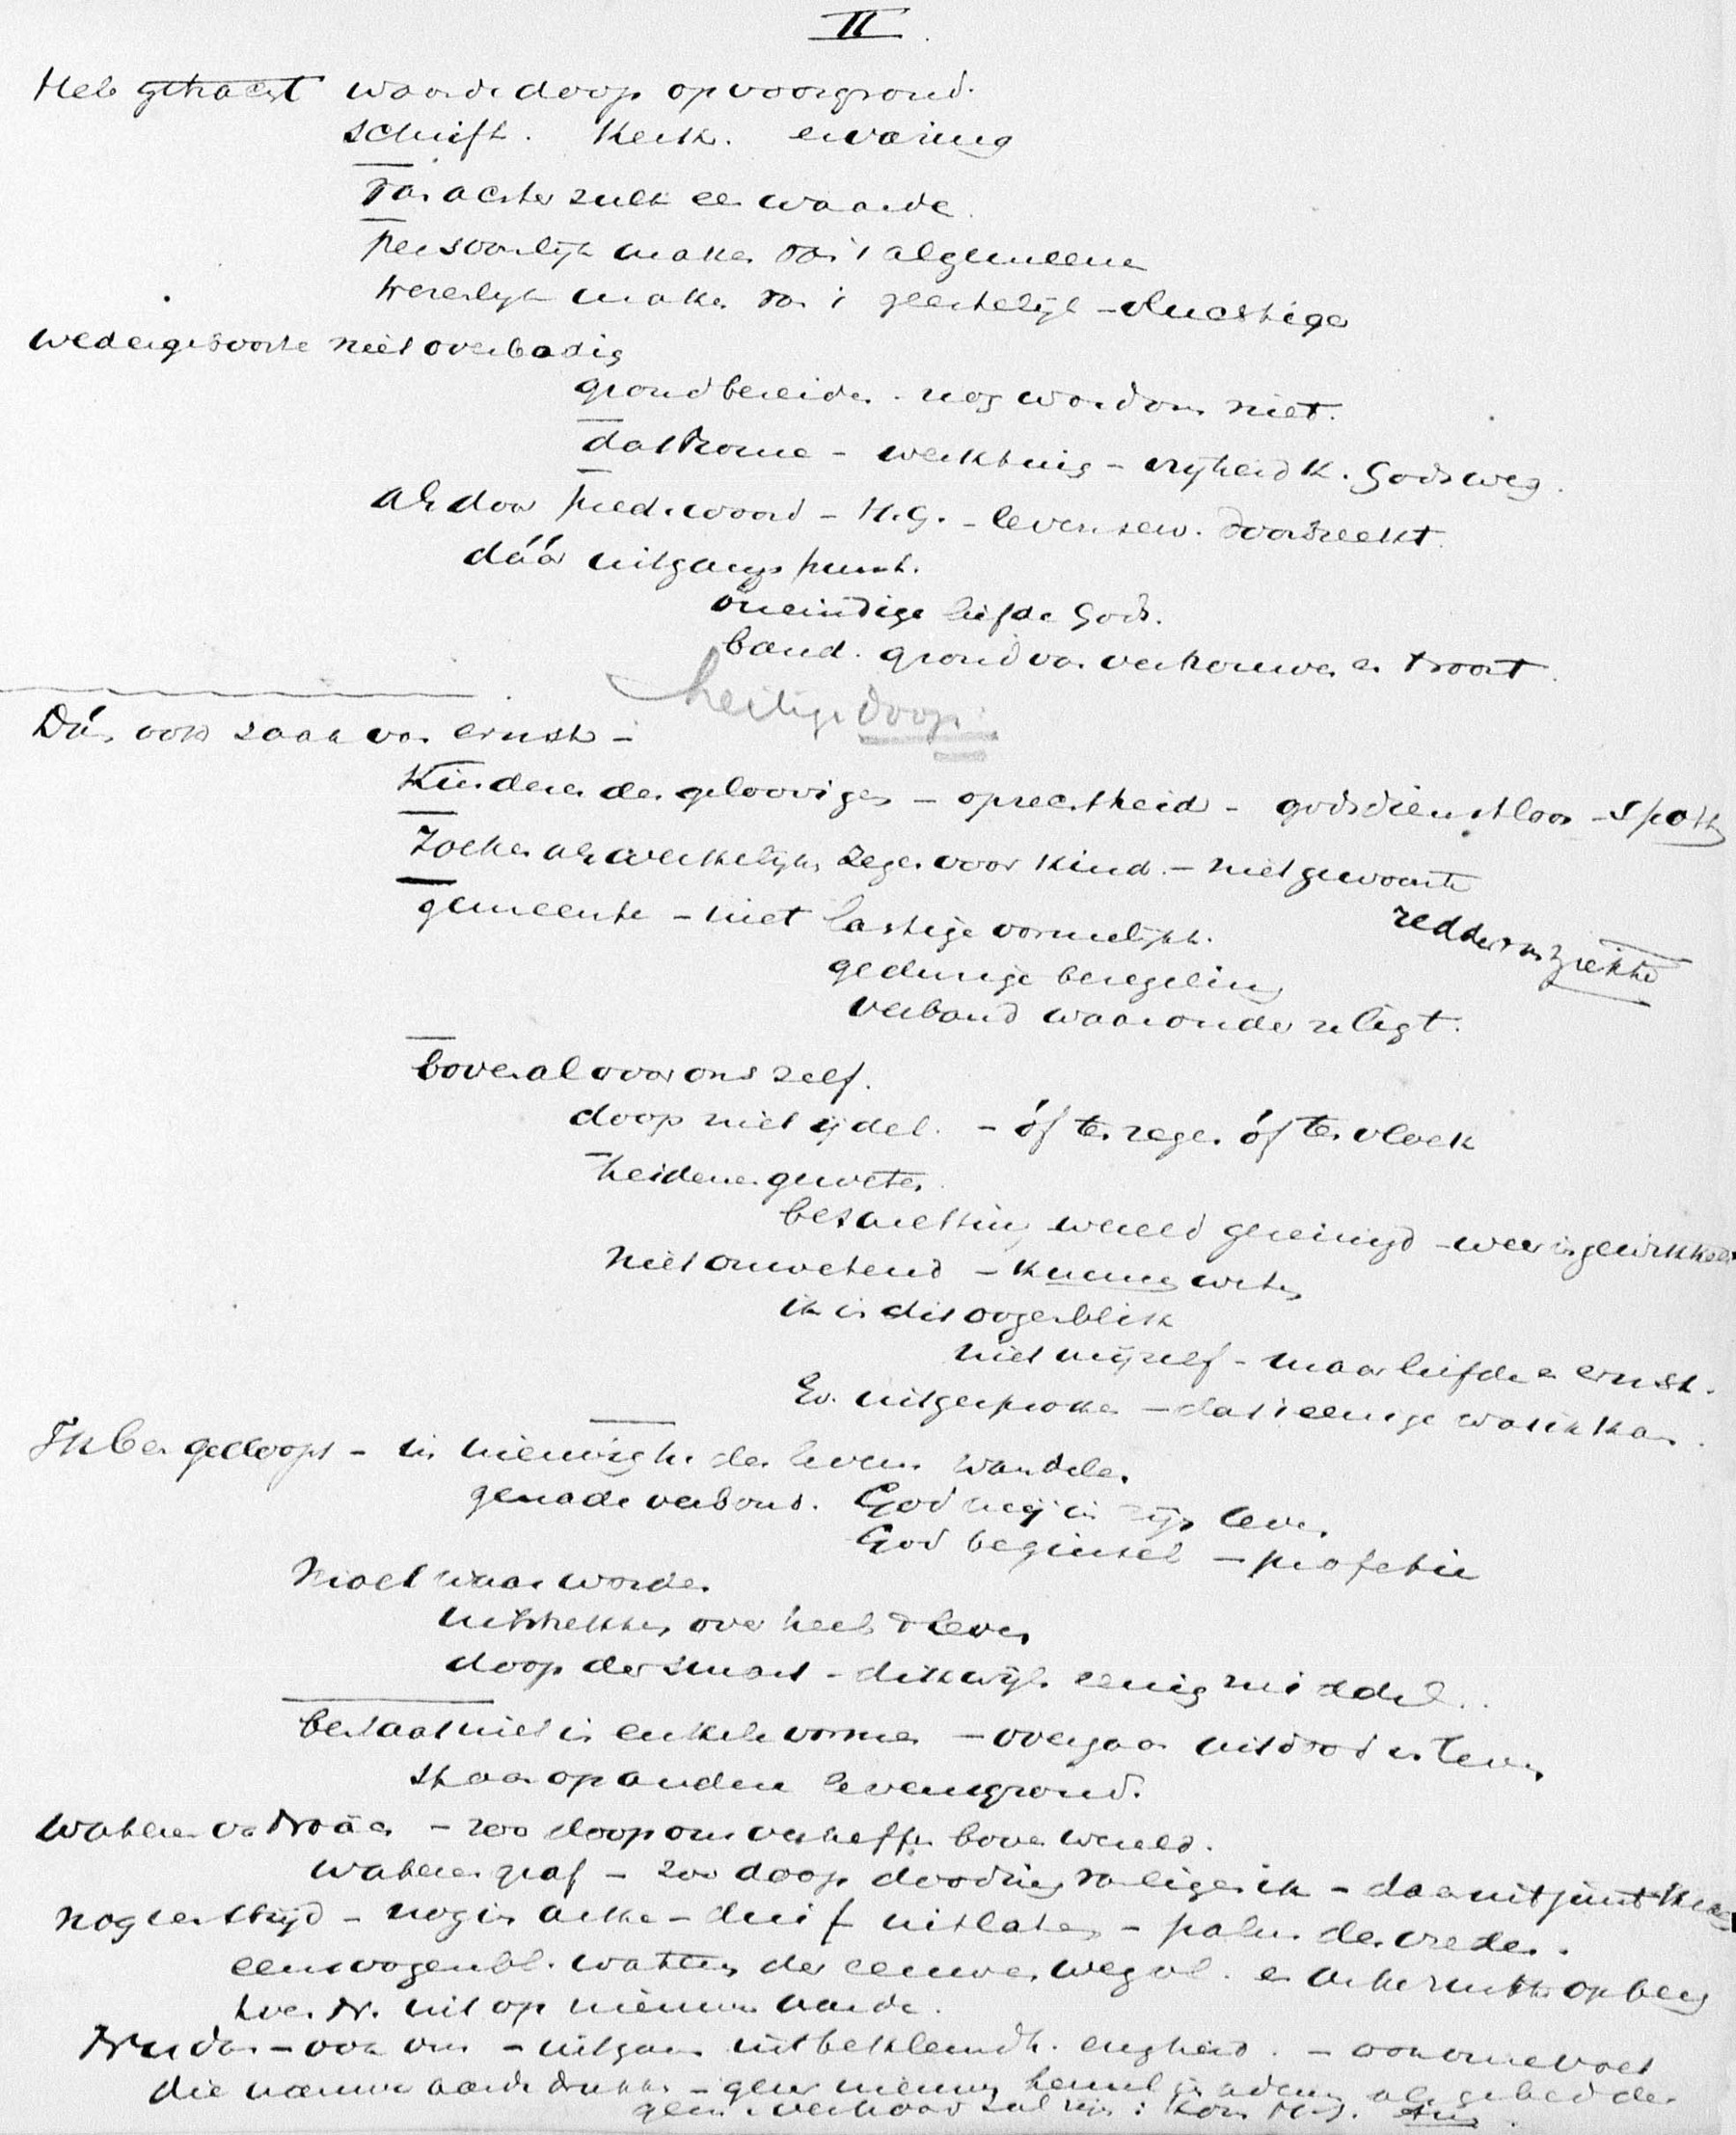 II
Heb getracht waarde doop op voorgrond.
schrift. Kerk. ervaring
zulk een waarde.
persoonlijk maken van 't algemeene
werelijk maken van 't geestelijk - vluchtige
wedergeboorte niet overbodig
grond bereiden - nog word ons niet.
dat kome - werktuig - vrijheid k. Gods weg.
Als door pred. woord - H.G. - levenserv. doorbreekt.
dáár uitgangspunt.
oneindige liefde Gods.
band. grond van vertrouwen en troost.
heilige doop.
Dús ook zaak van ernst -
Kinderen der geloovigen - oprechtheid - godsdienstloos - spott
Zoeken als werkelijke zegen voor kind. - niet gewoonte
gemeente - niet lastige vormelijkh.
gedurige
verband waaronder ze ligt.
bovenal voor ons zelf.
doop niet ijdel. - óf ten zegen óf ten vloek
heidenen geweten.
besmetting wereld gereinigd - weer ingewikkeld
Niet onwetend - kunnen weten
ik in dit oogenblik
niet mijzelf - maar liefde en ernst.
Ev. uitgesproken - dat 't eenige wat ik kan.
Ik ben gedoopt - in nieuwigh. des levens wandelen
genade verbond. God mij in zijn leven
God beginsel - profetie
Moet waar worden
uitstrekken over heel 't leven
doop der smart - dikwijls eenig middel.
bestaat niet in enkele vormen - overgaan uit dood in leven
staan op anderen levensgrond.
Wateren v. Noäch - zoo doop ons verheffen boven wereld.
Wateren graf - zoo doop dooding van eigen ik - daaruit
Nog in strijd - nog in arke - duif uitlaten - palm des vredes.
eens oogenbl. wateren der eeuwen wegvl. en arke rusten op berg
hoe N. uit op nieuwe aarde.
- ook ons - uitgaan uit beklemdh. engheid. - ook onze voet
die nieuwe aarde drukken - geur nieuwen hemel inademen als gebed der
gem. verhoord zal zijn : Kom H.J. Am.